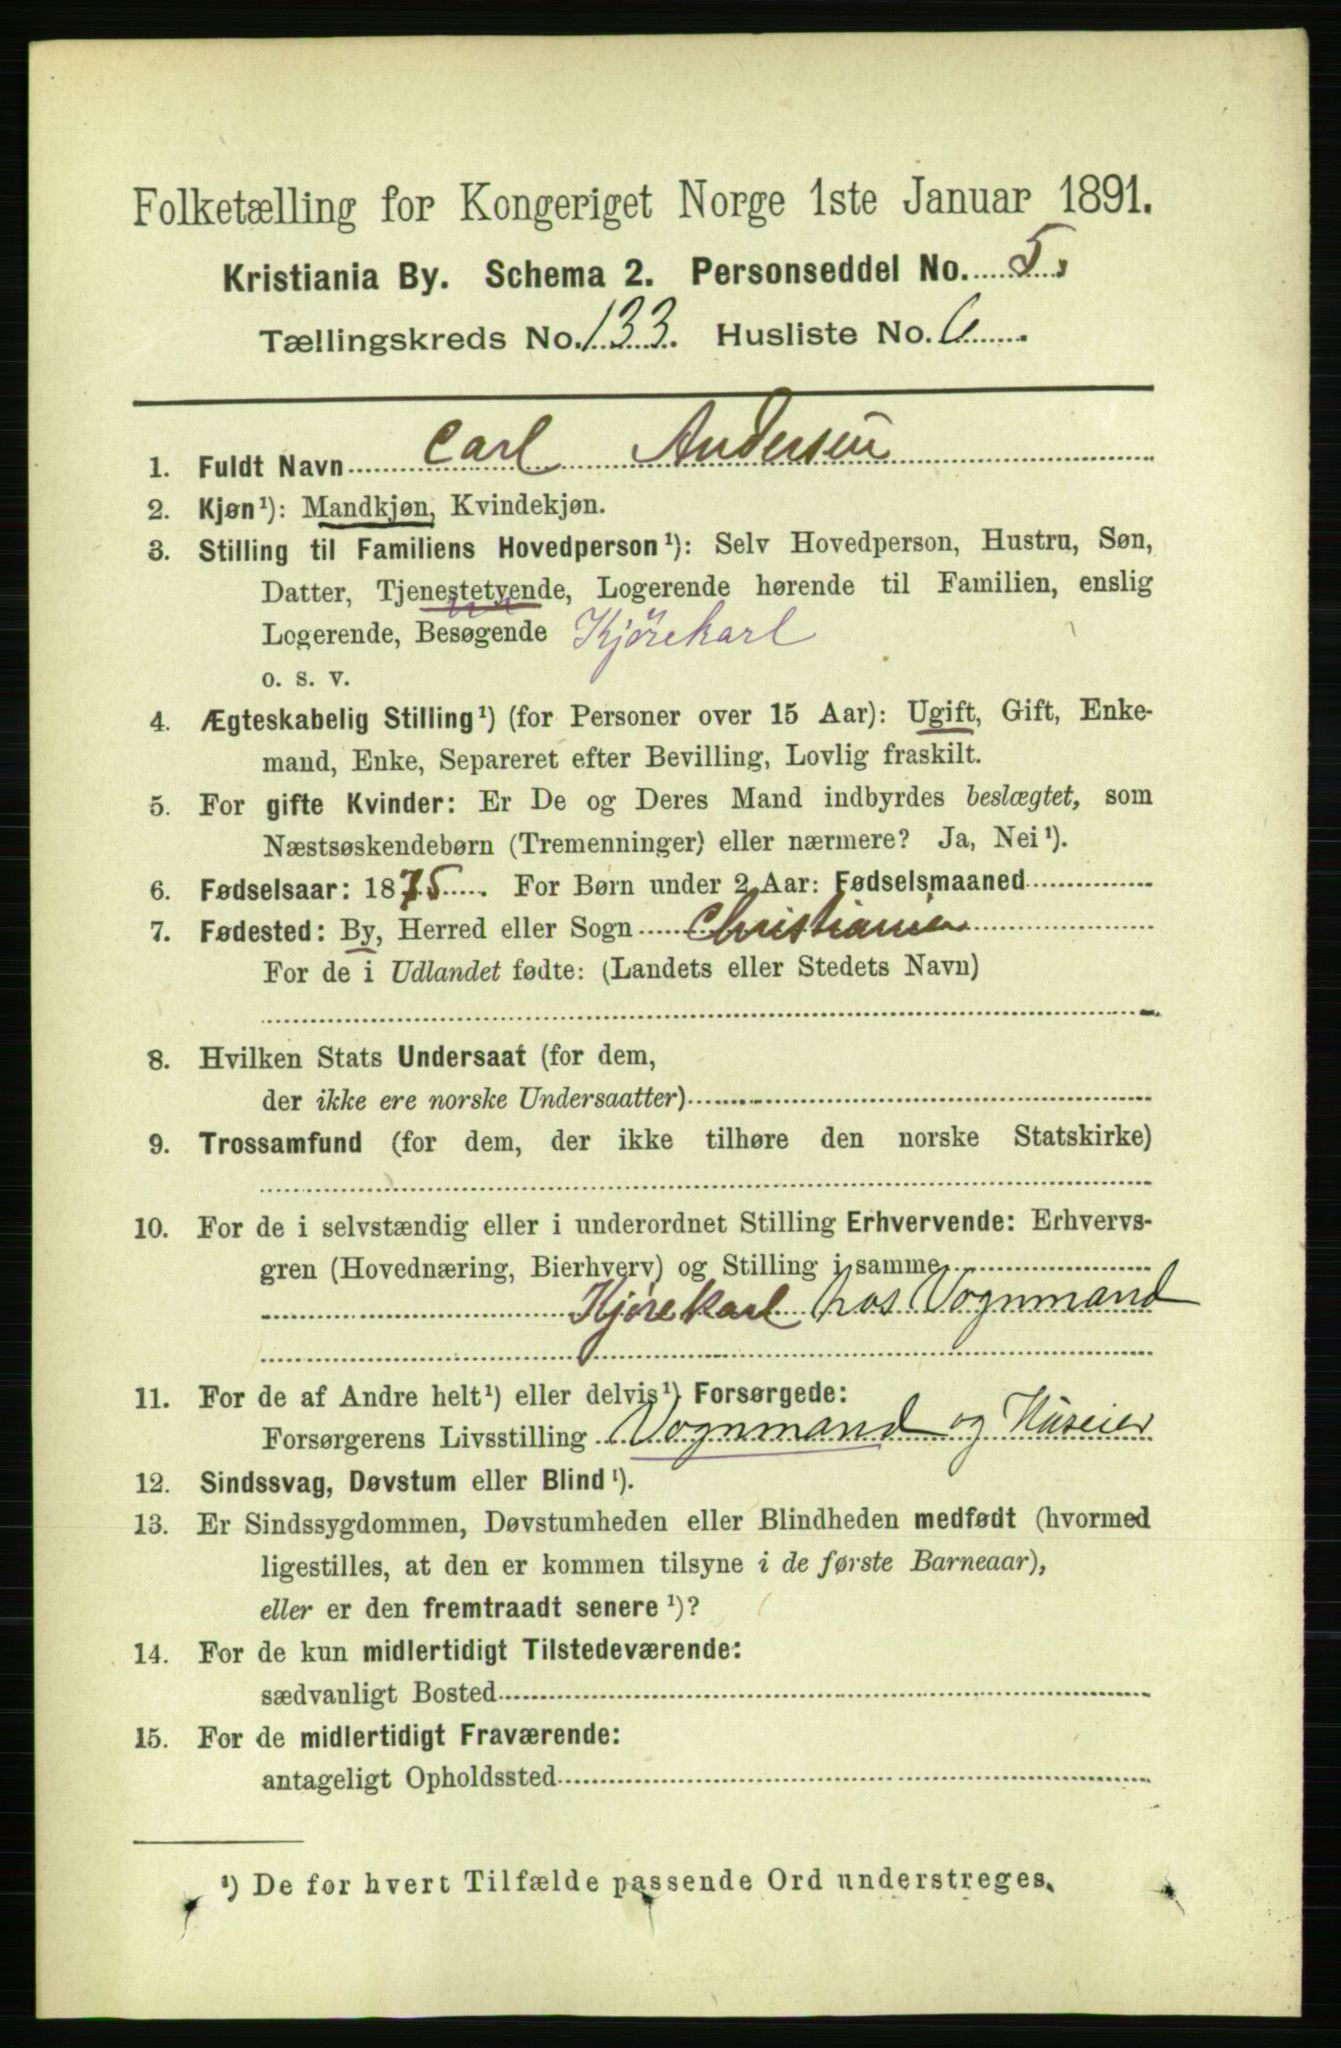 Folketælling for Kongeriget Norge 1ste Januar 1891.
Kristiania By. Schema 2. Personseddel No. 5.
Tællingskreds No. 133. Husliste No. 6.
1. Fuldt Navn Carl Andersen
2. Kjøn¹): Mandkjøn, Kvindekjøn.
3. Stilling til Familiens Hovedperson¹): Selv Hovedperson, Hustru, Søn,
Datter, Tjenestetyende, Logerende hørende til Familien, enslig
Logerende, Besøgende Kjörekarl
o. s. v.
4. Ægteskabelig Stilling¹) (for Personer over 15 Aar): Ugift, Gift, Enke-
mand, Enke, Separeret efter Bevilling, Lovlig fraskilt.
5. For gifte Kvinder: Er De og Deres Mand indbyrdes beslægtet, som
Næstsøskendebørn (Tremenninger) eller nærmere? Ja, Nei¹).
6. Fødselsaar: 1875. For Børn under 2 Aar: Fødselsmaaned
7. Fødested: By, Herred eller Sogn Christiania
For de i Udlandet fødte: (Landets eller Stedets Navn)
8. Hvilken Stats Undersaat (for dem,
der ikke ere norske Undersaatter)
9. Trossamfund (for dem, der ikke tilhøre den norske Statskirke)
10. For de i selvstændig eller i underordnet Stilling Erhvervende: Erhvervs-
gren (Hovednæring, Bierhverv) og Stilling i samme
Kjørekarl hos Vognmand
11. For de af Andre helt¹) eller delvis¹) Forsørgede:
Forsørgerens Livsstilling Vognmand og Huseier
12. Sindssvag, Døvstum eller Blind¹).
13. Er Sindssygdommen, Døvstumheden eller Blindheden medfødt (hvormed
ligestilles, at den er kommen tilsyne i de første Barneaar),
eller er den fremtraadt senere¹)?
14. For de kun midlertidigt Tilstedeværende:
sædvanligt Bosted
15. For de midlertidigt Fraværende:
antageligt Opholdssted
¹) De for hvert Tilfælde passende Ord understreges.